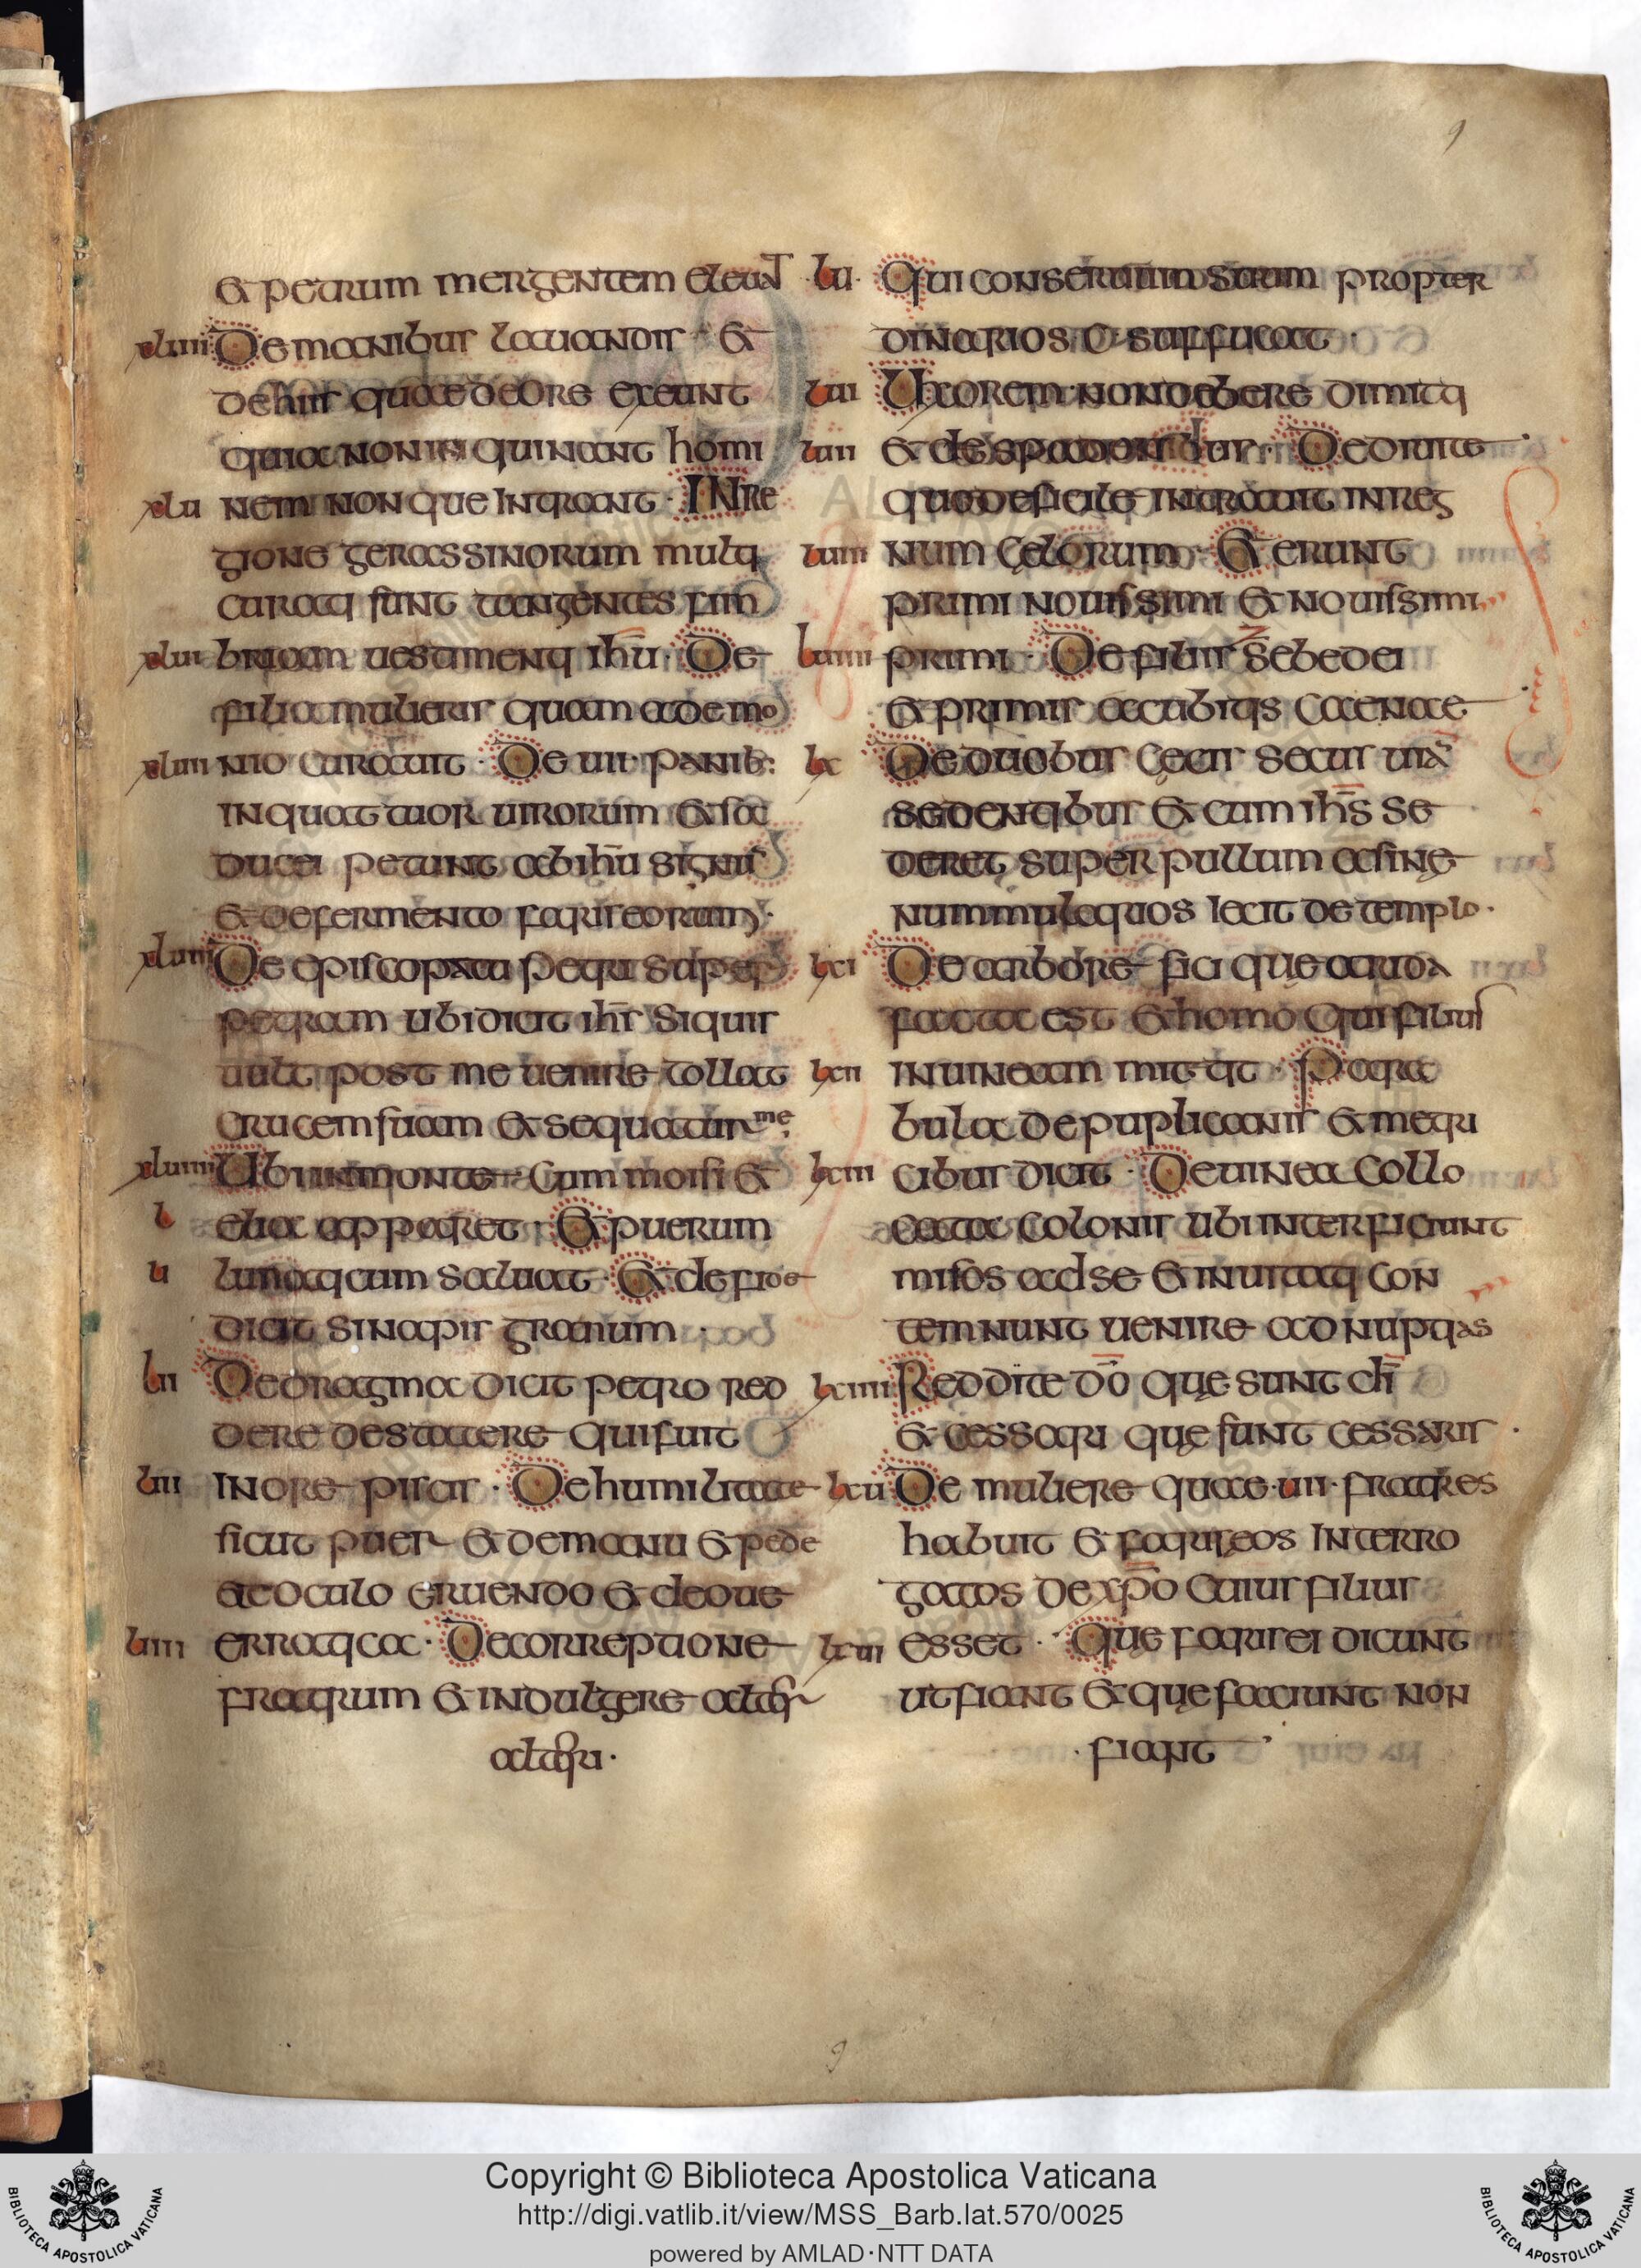 9
& petrum mergentem eleuaT
xluii De manibus lauandis &
de his quae de ore exeunt
quia non inquinant homi
xlu nem non que intrant · IN re
gione gerassinorum multi
curati sunt tangentes fim
xlui briam uestimenti ihu · De
filia mulieris quam a demo
xluii nio curauit · De uii · panib:
in quattuor uirorum & sa
ducei petunt ab ihu signu
& de fermento fariseorum ·
xluiii De episcopatu petri super
petram ubi dicit ihs Si quis
uult post me uenire tollat
crucem suam & sequatur me
xluiiii Ubi in monte cum moisi &
l elia apparet · & puerum
li lunaticum saluat · & de fide
dicit sinapis granum ·
lii De dragma dicit petro red
dere de statere qui fuit
liii in ore piscis · De humilitate
sicut puer & de manu & pede
ac oculo eruendo & de oue
liiii erratica · De correptione
fratrum & indulgere alter
alteri ·
· lu · Qui conseruum suum propter
dinarios · c · suffucat ·
lui Uxorem non debere dimiti
luii & de spadonibus · De diuite
quo deficile intrauit in reg
luiii num celorum · & erunt
primi nouissimi & nouissimi
luiiii primi · De filiis sebedei
& primis accubitis caenae
lx De duobus cecis secus uia
sedentibus & cum ihs se
deret super pullum asine
nummularios iecit de templo ·
lxi De arbore fici que arida
facta est & homo qui filius
lxii in uineam mittit · Para
bula de puplicanis & meri
lxiii cibus dicit · De uinea collo
cata colonis ubi interficiunt
misos ad se & inuitati con
temnunt uenire ad nuptias
lxiiii Reddite do que sunt di
& cessari que sunt cessaris ·
lxu De muliere quae · uii · fratres
habuit & fariseos interro
gatos de xpo cuius filius
lxui esset · Que farisei dicunt
ut fiant & que faciunt non
· fiant
9
Copyright © Biblioteca Apostolica Vaticana
http://digi.vatlib.it/view/MSS_Barb.lat.570/0025
powered by AMLAD·NTT DATA
BIBLIOTECA APOSTOLICA VATICANA
BIBLIOTECA APOSTOLICA VATICANA